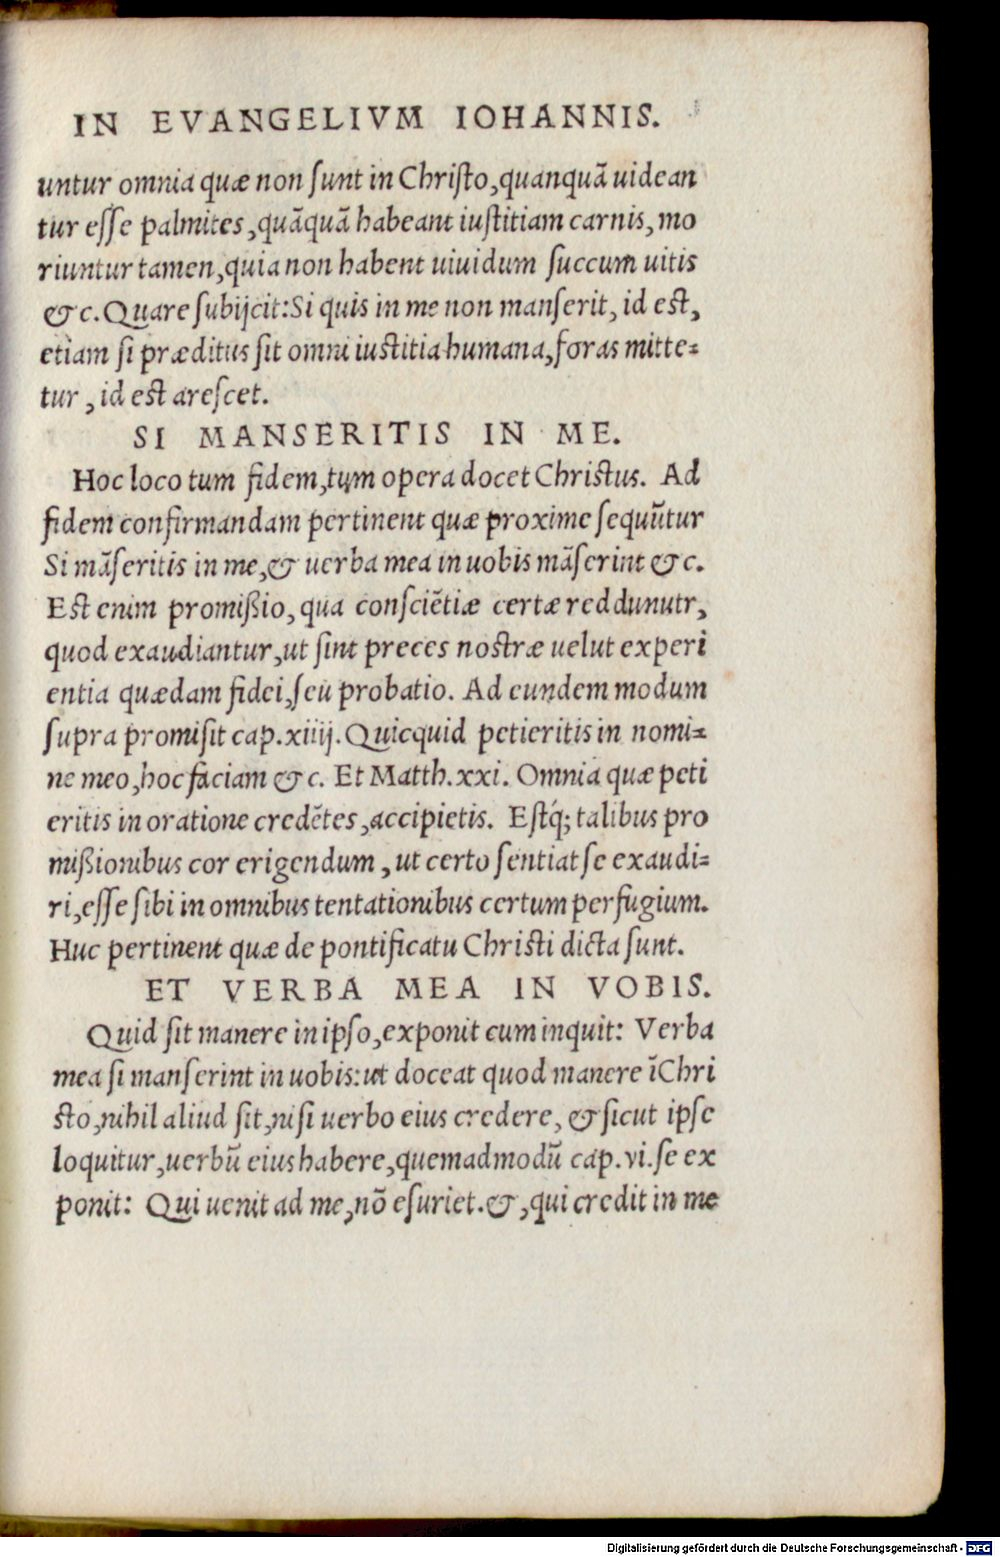 IN EVANGELIVM IOHANNIS.
untur omnia quæ non ſunt in Chriſto,quanquā uidean
tur eſſe palmites,quāquā habeant iuſtitiam carnis,mo
riuntur tamen,quia non habent uiuidum ſuccum uitis
&c.Quare ſubijcit:Si quis in me non manſerit,id eſt,
etiam ſi præditus ſit omni iuſtitia humana,foras mitte⸗
tur,id eſt areſcet.
SI MANSERITIS IN ME.
Hoc loco tum fidem,tum opera docet Chriſtus. Ad
fidem confirmandam pertinent quæ proxime ſequūtur
Si māſeritis in me,& uerba mea in uobis māſerint &c.
Eſt enim promißio,qua conſciētiæ certæ reddunutr,
quod exaudiantur,ut ſint preces noſtræ uelut experi
entia quædam fidei,ſeu probatio. Ad eundem modum
ſupra promiſit cap.xiiij.Quicquid petieritis in nomi⸗
ne meo,hoc faciam &c. Et Matth.xxi. Omnia quæ peti
eritis in oratione credētes,accipietis. Eſtq́; talibus pro
mißionibus cor erigendum,ut certo ſentiat ſe exaudi⸗
ri,eſſe ſibi in omnibus tentationibus certum perfugium.
Huc pertinent quæ de pontificatu Chriſti dicta ſunt.
ET VERBA MEA IN VOBIS.
Quid ſit manere in ipſo,exponit cum inquit: Verba
mea ſi manſerint in uobis:ut doceat quod manere ī Chri
ſto,nihil aliud ſit,niſi uerbo eius credere, & ſicut ipſe
loquitur,uerbū eius habere,quemadmodū cap.vi.ſe ex
ponit: Qui uenit ad me,nō eſuriet.&,qui credit in me
Digitalisierung gefördert durch die Deutsche Forschungsgemeinschaft - DFG